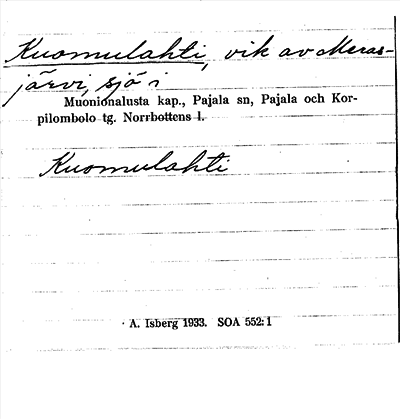 Kuomulahti, vik av Meras-
järvi, sjö i
Muonionalusta kap., Pajala sn, Pajala och Kor-
pilombolo tg. Norrbottens l.
Kuomulahti
A. Isberg 1933. SOA 552:1